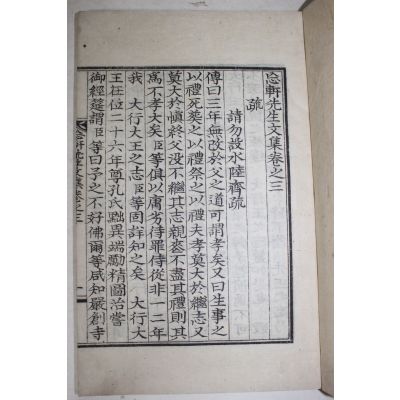 忘軒先生文集卷之三
疏
請勿設水陸齊疏
傳曰三年無改於父之道可謂孝矣又曰生事之
以禮死葬之以禮祭之以禮夫孝莫大於繼志又
莫大於愼終父沒不繼其志親葬不盡其禮則其
爲不孝大矣臣等俱以庸劣待罪侍從非一二年
我 大行大王之志臣等固詳知之矣 大行大
王在位二十六年尊孔氏黜異端勵精圖治嘗
御經筵謂臣等曰予之不好佛爾等咸知嚴創寺
忘軒先生文集卷之三
一